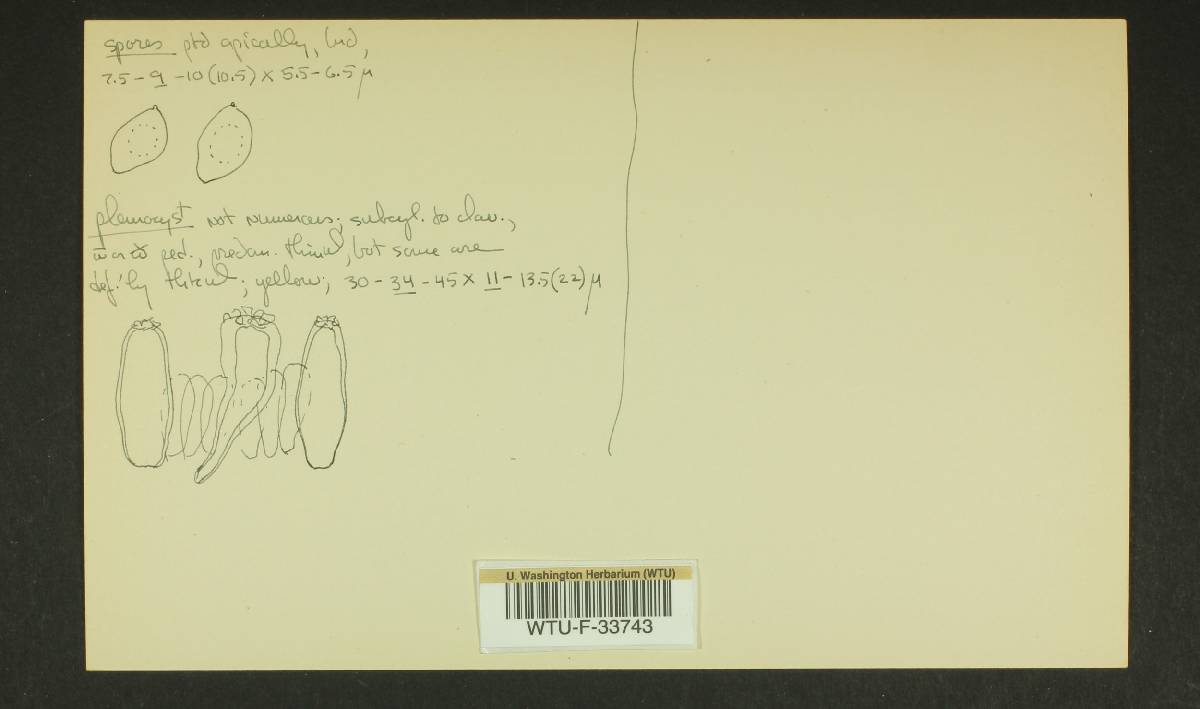 spores ptd apically,
7.5-9-10(10.5) x 5.5-6.5 μ
pleurocyst not numerous; subcyl. to clav.,
ped., predom. thinwl, but some are
def.'ly thkwl; yellow; 30-34-45 x 11-13.5(22) μ
U. Washington Herbarium (WTU)
WTU-F-33743